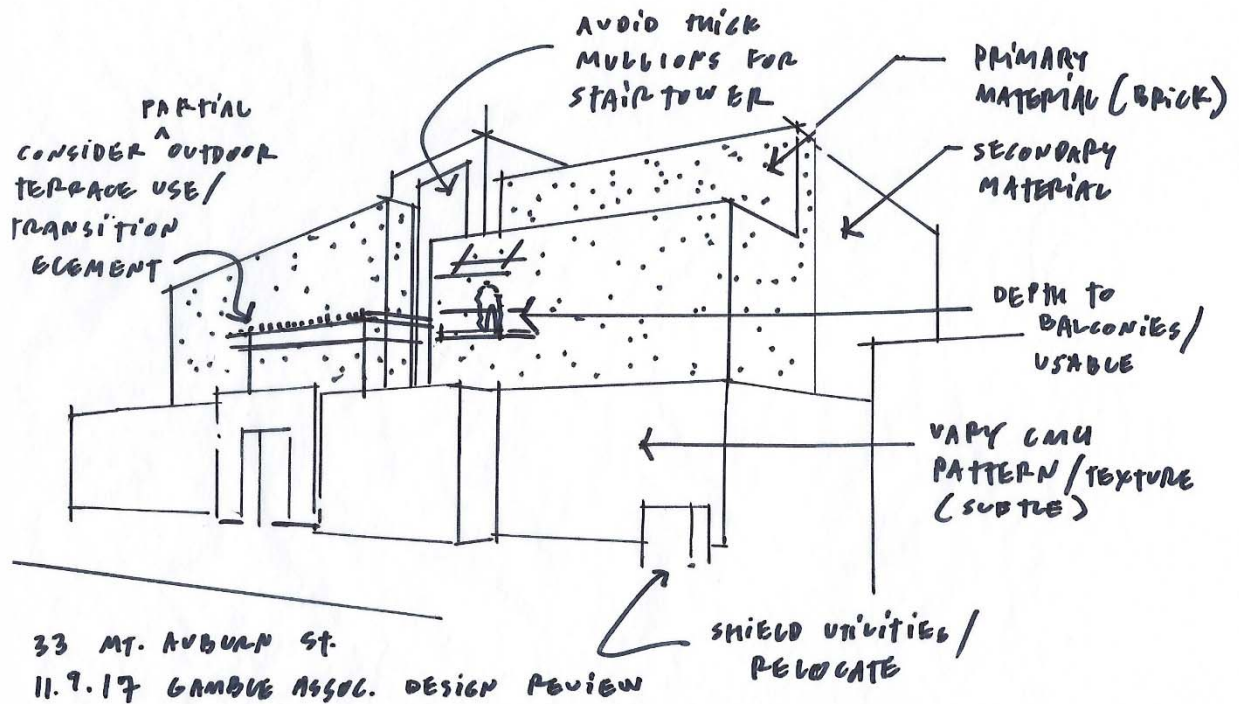 AVOID THICK
MULLIONS FOR
STAIR TOWER
PRIMARY
MATERIAL (BRICK)
SECONDARY
MATERIAL
PARTIAL
CONSIDER ^ OUTDOOR
TERRACE USE/
TRANSITION
ELEMENT
DEPTH TO
BALCONIES/
USABLE
VARY CMU
PATTERN/TEXTURE
(SUBTLE)
SHIELD UTILITIES/
RELOCATE
33 MT. AUBURN ST.
11.9.17 GAMBLE ASSOC. DESIGN REVIEW